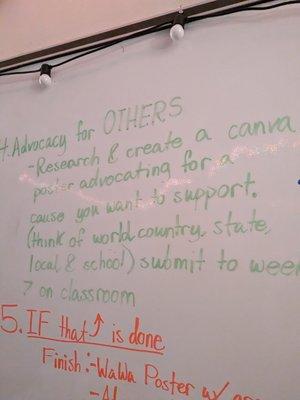 4. Advocacy for OTHERS
- Research & create a canva
poster advocating for a
cause you want to support.
(think of world, country, state,
local & school) submit to week
7 on classroom
5. IF that ↑ is done
Finish: - WaWa Poster w/